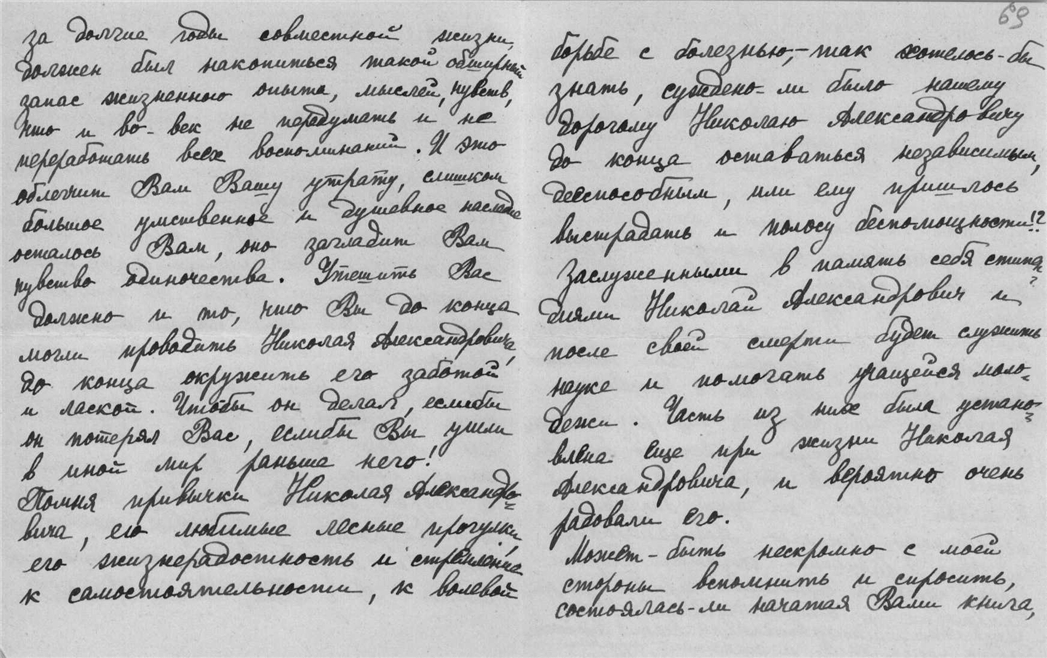 за долгие годы совместной жизни,
должен был накопиться такой обширный
запас жизненного опыта, мыслей, чувств,
что и во-век не передумать и не
переработать всех воспоминаний. И это
облегчит Вам Вашу утрату, слишком
большое умственное и душевное наследие
осталось Вам, оно загладит Вам
чувство одиночества. Утешить Вас
должно и то, что Вы до конца
могли проводить Николая Александровича,
до конца окружить его заботой
и лаской. Чтобы он делал, еслибы
он потерял Вас, еслибы Вы ушли
в иной мир раньше него!
Помня привычки Николая Александро=
вича, его любимые лесные прогулки,
его жизнерадостность и стремление
к самостоятельности, к волевой
69
борьбе с болезнью,-так хотелось-бы
знать, суждено-ли было нашему
дорогому Николаю Александровичу
до конца оставаться независимым,
дееспособным, или ему пришлось
выстрадать и полосу беспомощности!?
Заслуженными в память себя стипен=
диями Николай Александрович и
после своей смерти будет служить
науке и помогать учащейся моло=
дежи. Часть из них была устано=
влена еще при жизни Николая
Александровича, и вероятно очень
радовали его.
Может-быть нескромно с моей
стороны вспомнить и спросить,
состоялась-ли начатая Вами книга,